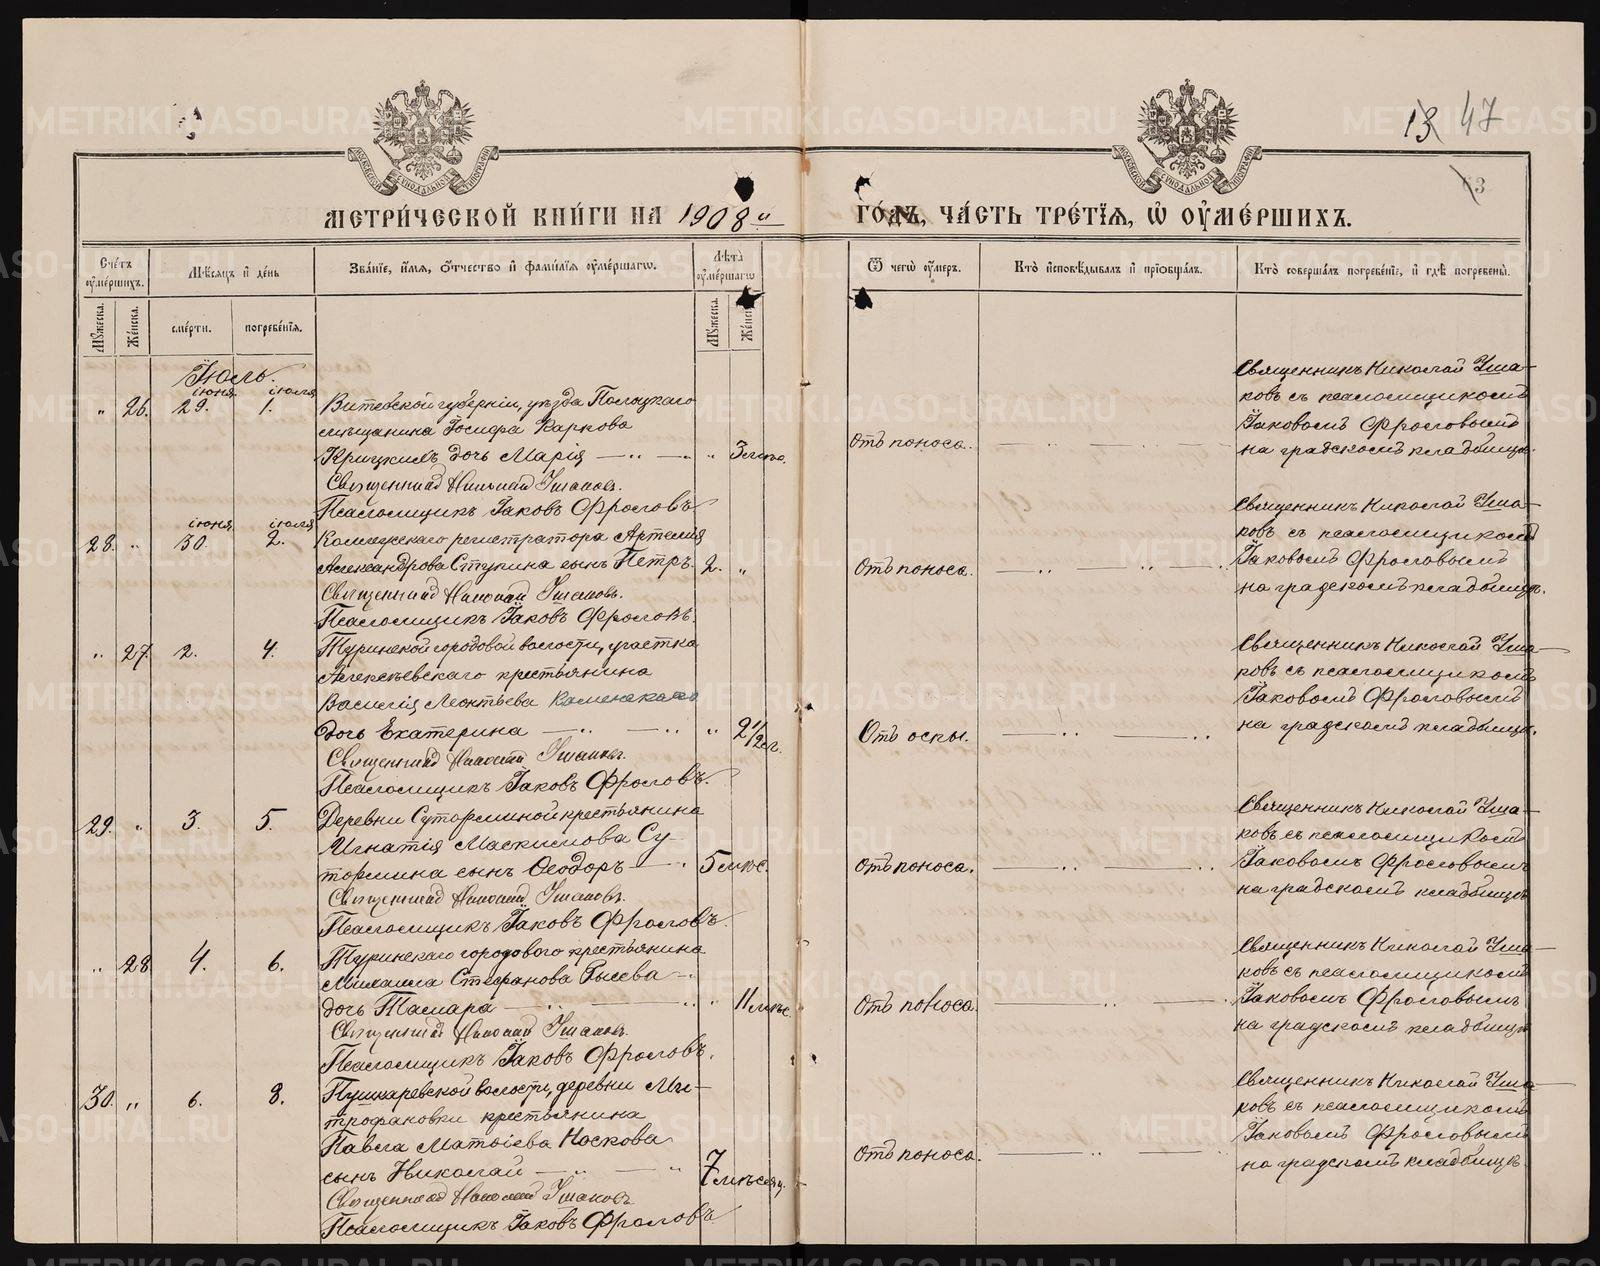 13 47
63
МЕТРИ́ЧЕСКОЙ КНИ́ГИ НА 1908 й ГО́ДЪ, ЧА́СТЬ ТРЕ́ТЇѦ, Ѡ҆ ОУ҆МЕ́РШИХЪ.
Сче́тъ оу҆ме́ршихъ.
Мѣ́сѧцъ и҆ де́нь
Зва́нїе, и҆́мѧ, ѻ҆́тчество и҆ фами́лїѧ оу҆ме́ршагѡ.
Лѣ́та оу҆ме́ршагѡ
Ѿ чегѡ̀ оу҆́меръ.
Кто̀ и҆сповѣ́дывалъ и҆ прїѡбща́лъ.
Кто̀ соверша́лъ погребе́нїе, и҆ гдѣ̀ погребены̀.
Мꙋ́жеска.
Же́нска.
сме́рти.
погребе́нїѧ.
Мꙋ́жеска.
Же́нска
Іюль.
іюня іюля
" 26. 29. 1. Витебской губерніи, уѣзда Полоцкаго
мѣщанина Іосифа Каркова
Крицкихъ дочь Марія " 3 мѣс.
Священникъ Николай Ушаковъ.
Псаломщикъ Іаковъ Фроловъ
Отъ поноса.
Священникъ Николай Уша-
ковъ съ псаломщикомъ
Іаковомъ Фроловымъ
на градскомъ кладбищѣ.
іюня іюля
28. " 30. 2. Коллежскаго регистратора Артемія
Александрова Ступина сынъ Петръ 2. "
Священникъ Николай Ушаковъ.
Псаломщикъ Іаковъ Фроловъ.
Отъ поноса.
Священникъ Николай Уша-
ковъ съ псаломщикомъ
Іаковомъ Фроловымъ
на градскомъ кладбищѣ.
" 27. 2. 4. Туринской городовой волости, участка
Алексѣевскаго крестьянина
Василія Леонтьева Каменскаго
дочь Екатерина " 2 1/2 г.
Священникъ Николай Ушаковъ.
Псаломщикъ Іаковъ Фроловъ.
Отъ оспы.
Священникъ Николай Уша-
ковъ съ псаломщикомъ
Іаковомъ Фроловымъ
на градскомъ кладбищѣ.
29. " 3. 5. Деревни Суторминой крестьянина
Игнатія Максимова Су-
тормина сынъ Ѳеодоръ 5 мѣс.
Священникъ Николай Ушаковъ.
Псаломщикъ Іаковъ Фроловъ.
Отъ поноса.
Священникъ Николай Уша-
ковъ съ псаломщикомъ
Іаковомъ Фроловымъ
на градскомъ кладбищѣ
" 28 4. 6. Туринскаго городового крестьянина
Михаила Стефанова Рысева
дочь Тамара " 11 мѣс.
Священникъ Николай Ушаковъ.
Псаломщикъ Іаковъ Фроловъ.
Отъ поноса.
Священникъ Николай Уша-
ковъ съ псаломщикомъ
Іаковомъ Фроловымъ
на градскомъ кладбищѣ
30. " 6. 8. Пушкаревской волости, деревни Ми-
трофановки крестьянина
Павла Матѳіева Носкова
сынъ Николай 7 мѣсяц.
Священникъ Николай Ушаковъ
Псаломщикъ Іаковъ Фроловъ
Отъ поноса.
Священникъ Николай Уша-
ковъ съ псаломщикомъ
Іаковомъ Фроловымъ
на градскомъ кладбищѣ.
METRIKI.GASO-URAL.RU